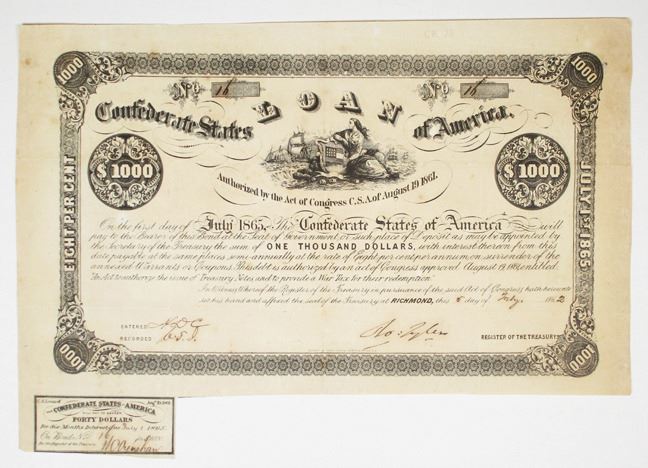 1000
1000
No 16
No 16
LOAN
Confederate States of America.
$ 1000
$ 1000
Authorized by the Act of Congress C.S.A. of August 19 1861.
EIGHT PER CENT
JULY 1st 1865
On the first day of July 1865, The Confederate States of America will
pay to the Bearer of this Bond at the Seat of Government or such place of Deposit as may be appointed by
the Secretary of the Treasury the sum of ONE THOUSAND DOLLARS, with interest thereon from this
date payable at the same place semi-annually at the rate of Eight per cent per annum on surrender of the
annexed Warrants or Coupons. This debt is authorized by an act of Congress approved August 19, 1861 entitled
An Act to authorize the issue of Treasury Notes and to provide a War Tax for their redemption.
In Witness Whereof the Register of the Treasury in pursuance of the said Act of Congress hath hereunto
set his hand and affixed the seal of the Treasury at RICHMOND, this day of 1862
ENTERED
RECORDED
Ro: Tyler
REGISTER OF THE TREASURY
1000
1000
CONFEDERATE STATES OF AMERICA
FORTY DOLLARS
For Six Months Interest due July 1 1865.
On Bond No 16